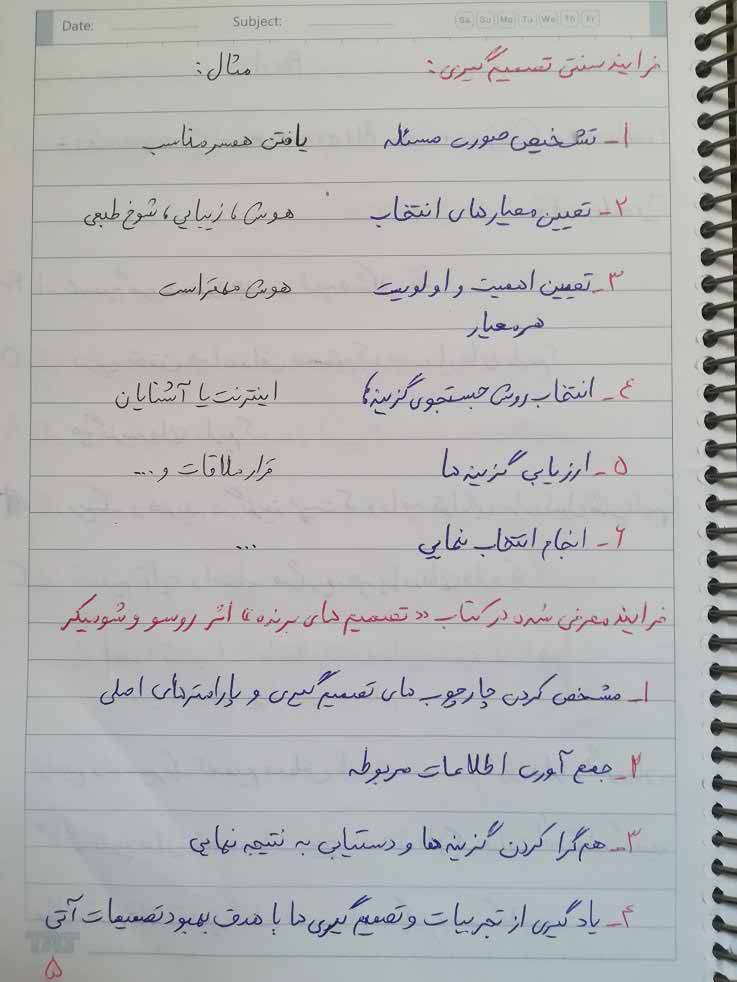 Date: Subject: Sa Su Mo Tu We Th Fr
فرایند سنتی تصمیم گیری: مثال:
۱- تشخیص صورت مسئله یافتن همسر مناسب
۲- تعیین معیارهای انتخاب هوش، زیبایی، شوخ طبعی
۳- تعیین اهمیت و اولویت هوش مهمتر است
هر معیار
۴- انتخاب روش جستجوی گزینه‌ها اینترنت یا آشنایان
۵- ارزیابی گزینه ها قرار ملاقات و ...
۶- انجام انتخاب نهایی ...
فرایند معرفی شده در کتاب «تصمیم های برنده» اثر روسو و شومیکر
۱- مشخص کردن چارچوب های تصمیم گیری و پارامترهای اصلی
۲- جمع آوری اطلاعات مربوطه
۳- هم گرا کردن گزینه ها و دستیابی به نتیجه نهایی
۴- یادگیری از تجربیات و تصمیم گیری ها با هدف بهبود تصمیمات آتی
۵